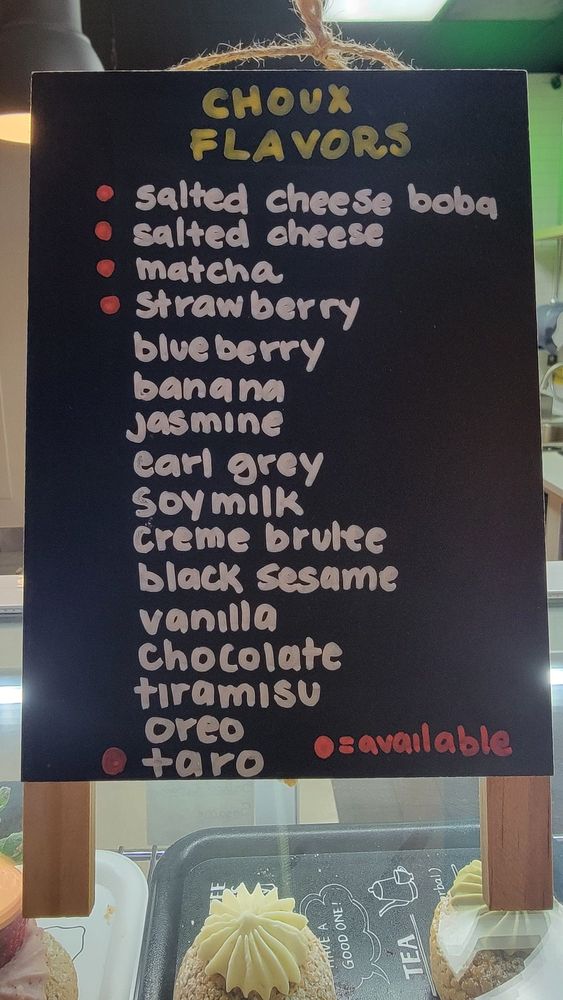 CHOUX
FLAVORS
salted cheese boba
salted cheese
matcha
strawberry
blueberry
banana
jasmine
earl grey
soymilk
creme brulee
black sesame
vanilla
chocolate
tiramisu
oreo
taro
=available
HAVE A
GOOD ONE!
TEA